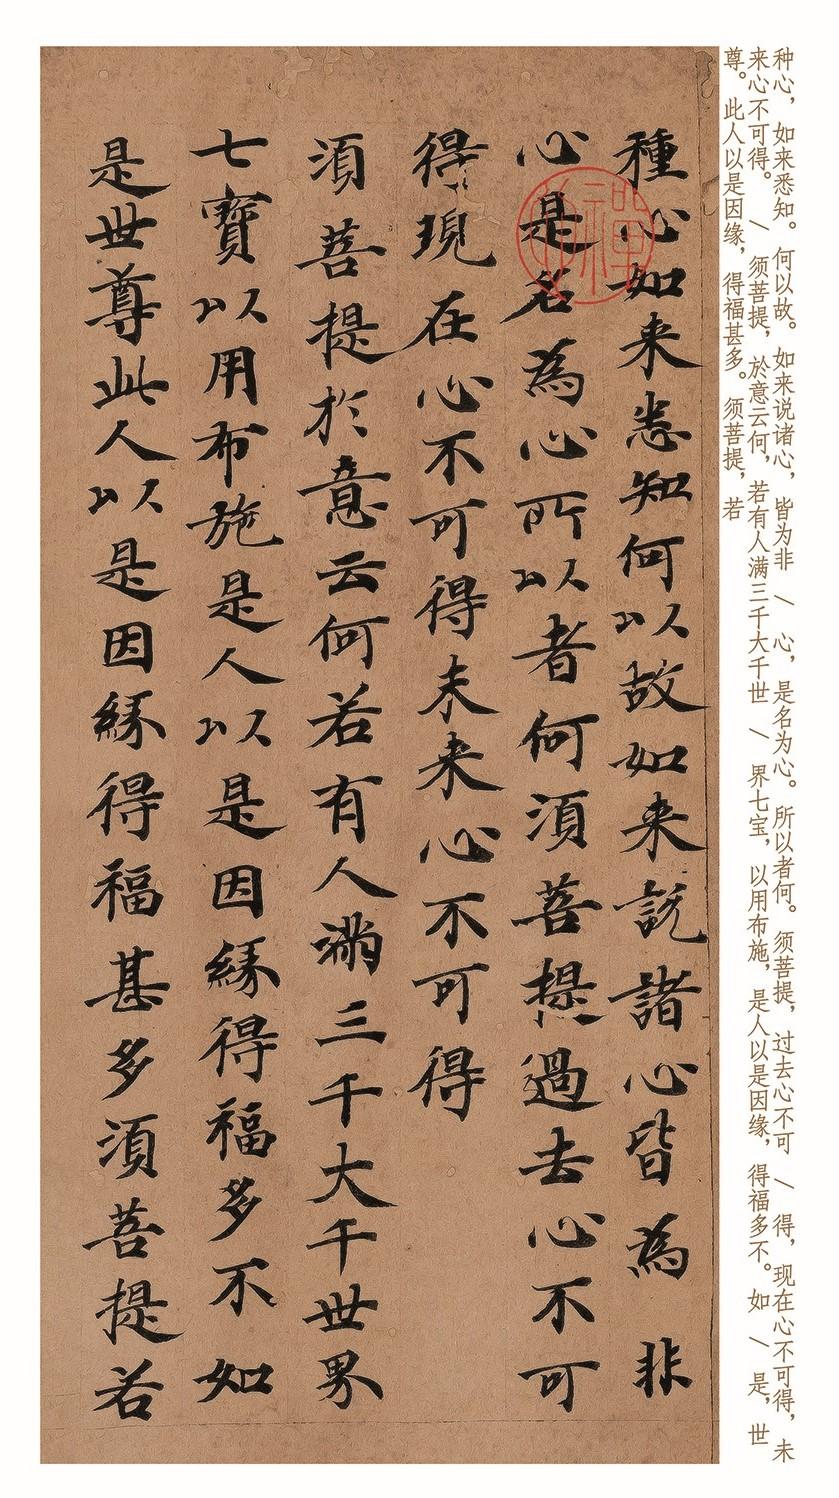 种心，如来悉知。何以故。如来说诸心，皆为非 \ 心，是名为心。所以者何。须菩提，过去心不可 \ 得，现在心不可得，未
来心不可得。 \ 须菩提，於意云何，若有人满三千大千世 \ 界七宝，以用布施，是人以是因缘，得福多不。如 \ 是，世
尊。此人以是因缘，得福甚多。须菩提，若
種心如来悉知何以故如来説諸心皆為非
心是名為心所以者何須菩提過去心不可
得現在心不可得未来心不可得
須菩提於意云何若有人滿三千大千世界
七寶以用布施是人以是因緣得福多不如
是世尊此人以是因緣得福甚多須菩提若
禪